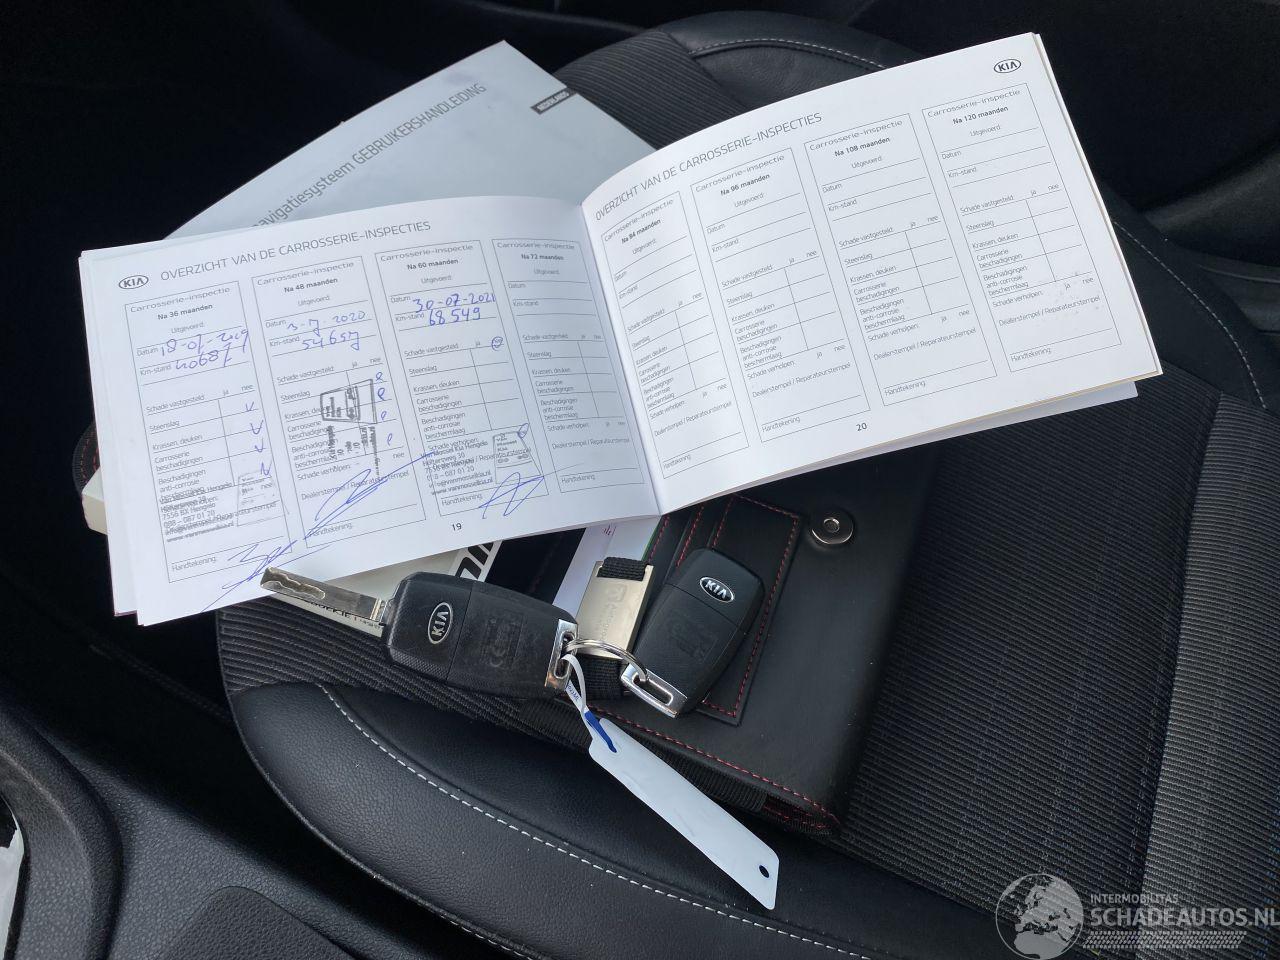 navigatiesysteem GEBRUIKERSHANDLEIDING
NEDERLANDS
KIA
OVERZICHT VAN DE CARROSSERIE-INSPECTIES
Carrosserie-inspectie
Na 36 maanden
Uitgevoerd:
Datum 18-07-2019
Km-stand 40687
Schade vastgesteld ja nee
Steenslag
Krassen, deuken
Carrosserie
beschadigingen
Beschadigingen
anti-corrosie
7556 BX Hengelo
088 - 087 01 20
Handtekening:
Carrosserie-inspectie
Na 48 maanden
Uitgevoerd:
Datum 3-7-2020
Km-stand 54657
Schade vastgesteld ja nee
Steenslag
Krassen, deuken
Carrosserie
beschadigingen
Beschadigingen
anti-corrosie
beschermlaag
Schade verholpen:
Dealerstempel / Reparateurstempel
Handtekening:
Carrosserie-inspectie
Na 60 maanden
Uitgevoerd:
Datum 30-07-2021
Km-stand 68549
Schade vastgesteld ja nee
Steenslag
Krassen, deuken
Carrosserie
beschadigingen
Beschadigingen
anti-corrosie
beschermlaag
Schade verholpen:
Van Mossel Kia Hengelo
7556 BX Hengelo
www.vanmosselkia.nl
Handtekening:
Carrosserie-inspectie
Na 72 maanden
Uitgevoerd:
Datum
Km-stand
Schade vastgesteld ja nee
Steenslag
Krassen, deuken
Carrosserie
beschadigingen
Beschadigingen
anti-corrosie
beschermlaag
Schade verholpen:
Dealerstempel / Reparateurstempel
Handtekening:
19
KIA
OVERZICHT VAN DE CARROSSERIE-INSPECTIES
Carrosserie-inspectie
Na 84 maanden
Uitgevoerd:
Datum
Km-stand
Schade vastgesteld ja nee
Steenslag
Krassen, deuken
Carrosserie
beschadigingen
Beschadigingen
anti-corrosie
beschermlaag
Schade verholpen:
Dealerstempel / Reparateurstempel
Handtekening:
Carrosserie-inspectie
Na 96 maanden
Uitgevoerd:
Datum
Km-stand
Schade vastgesteld ja nee
Steenslag
Krassen, deuken
Carrosserie
beschadigingen
Beschadigingen
anti-corrosie
beschermlaag
Schade verholpen:
Dealerstempel / Reparateurstempel
Handtekening:
Carrosserie-inspectie
Na 108 maanden
Uitgevoerd:
Datum
Km-stand
Schade vastgesteld ja nee
Steenslag
Krassen, deuken
Carrosserie
beschadigingen
Beschadigingen
anti-corrosie
beschermlaag
Schade verholpen:
Dealerstempel / Reparateurstempel
Handtekening:
Carrosserie-inspectie
Na 120 maanden
Uitgevoerd:
Datum
Km-stand
Schade vastgesteld ja nee
Steenslag
Krassen, deuken
Carrosserie
beschadigingen
Beschadigingen
anti-corrosie
beschermlaag
Schade verholpen:
Dealerstempel / Reparateurstempel
Handtekening:
20
KIA
KIA
INTERMOBILITAS
SCHADEAUTOS.NL